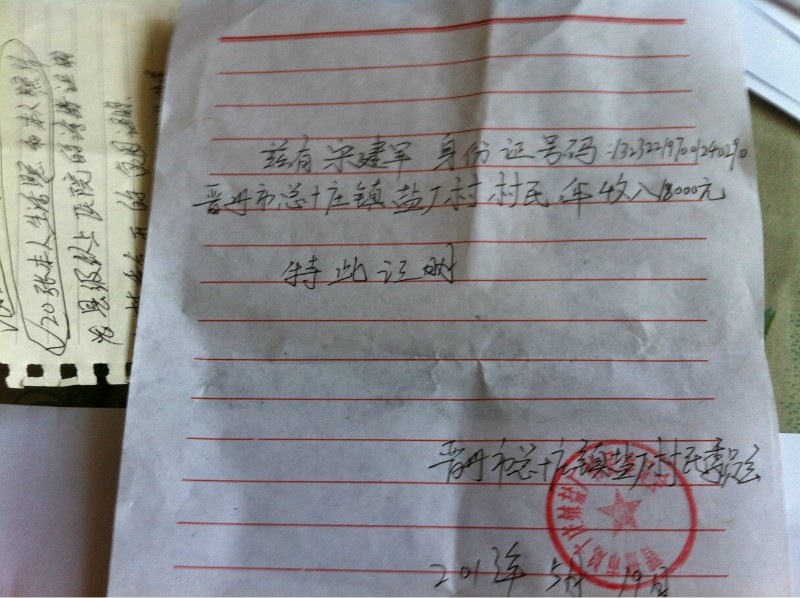 兹有宋建军 身份证号码:132322197001240290
晋州市总十庄镇盐厂村村民,年收入18000元
特此证明
晋州市总十庄镇盐厂村民委员会
201 年 5月 19日
20张本人生活照
县级以上医院的诊断证明